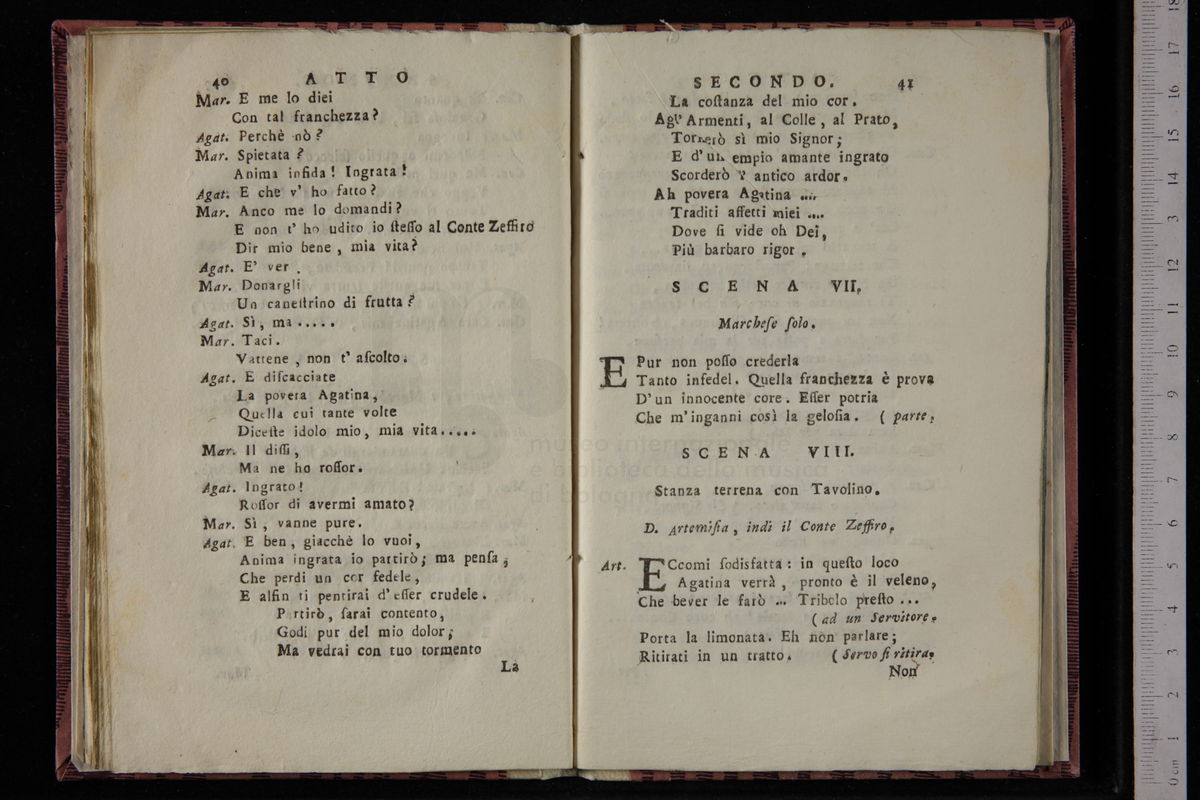 40 ATTO
Mar. E me lo diei
Con tal franchezza?
Agat. Perchè nò?
Mar. Spietata?
Anima infida! Ingrata!
Agat. E che v' ho fatto?
Mar. Anco me lo domandi?
E non t' ho udito io ſteſſo al Conte Zeffiro
Dir mio bene, mia vita?
Agat. E' ver.
Mar. Donargli
Un caneſtrino di frutta?
Agat. Sì, ma.....
Mar. Taci.
Vattene, non t' aſcolto.
Agat. E diſcacciate
La povera Agatina,
Quella cui tante volte
Diceſte idolo mio, mia vita.....
Mar. Il diſſi,
Ma ne ho roſſor.
Agat. Ingrato!
Roſſor di avermi amato?
Mar. Sì, vanne pure.
Agat. E ben, giacchè lo vuoi,
Anima ingrata io partirò; ma penſa,
Che perdi un cor fedele,
E alfin ti pentirai d' eſſer crudele.
Partirò, ſarai contento,
Godi pur del mio dolor;
Ma vedrai con tuo tormento
La
SECONDO. 41
La coſtanza del mio cor.
Agl' Armenti, al Colle, al Prato,
Tornerò sì mio Signor;
E d' un empio amante ingrato
Scorderò l' antico ardor.
Ah povera Agatina ....
Traditi affetti miei ....
Dove ſi vide oh Dei,
Più barbaro rigor.
SCENA VII.
Marcheſe ſolo.
E Pur non poſſo crederla
Tanto infedel. Quella franchezza è prova
D' un innocente core. Eſſer potria
Che m' inganni così la geloſia. (parte.
SCENA VIII.
Stanza terrena con Tavolino.
D. Artemiſia, indi il Conte Zeffiro.
Art. ECcomi ſodisfatta: in queſto loco
Agatina verrà, pronto è il veleno,
Che bever le farò ... Tribolo preſto ...
(ad un Servitore.
Porta la limonata. Eh non parlare;
Ritirati in un tratto. (Servo ſi ritira.
Non
museo internazionale
e biblioteca della musica
di bologna
0 cm 1 2 3 4 5 6 7 8 9 10 11 12 13 14 15 16 17 18